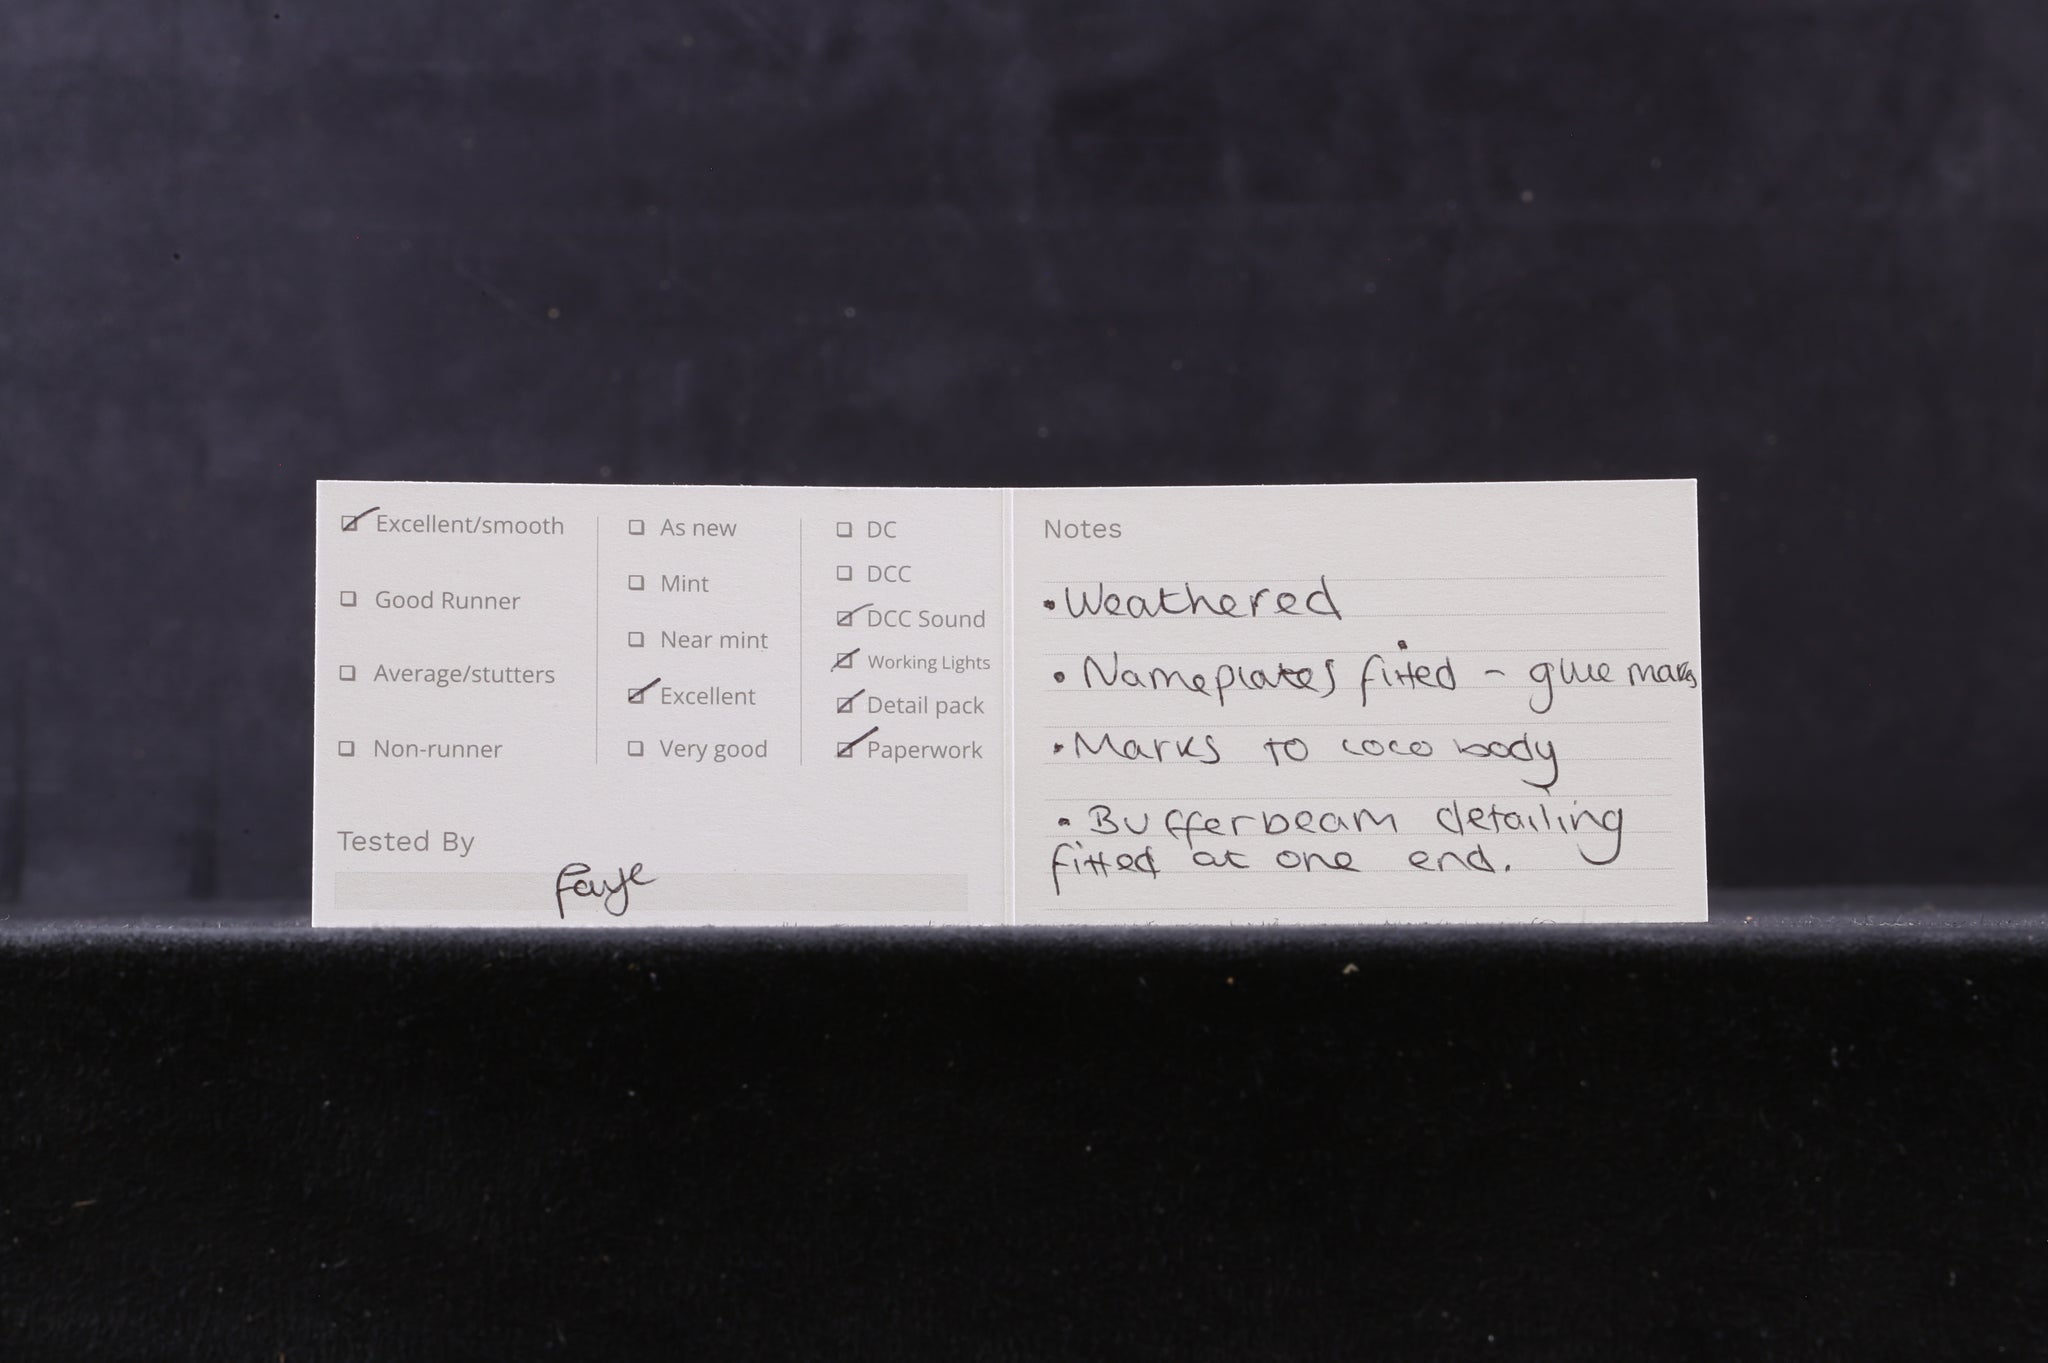 Excellent/smooth
Good Runner
Average/stutters
Non-runner
As new
Mint
Near mint
Excellent
Very good
DC
DCC
DCC Sound
Working Lights
Detail pack
Paperwork
Tested By
Faye
Notes
• Weathered
• Nameplates fitted - glue marks
• Marks to loco body
• Bufferbeam detailing
fitted at one end.